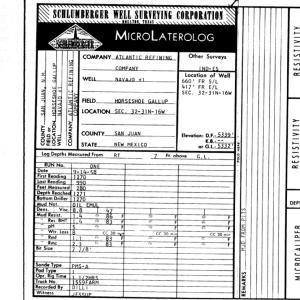 SCHLUMBERGER WELL SURVEYING CORPORATION
HOUSTON, TEXAS
SCHLUMBERGER
MICROLATEROLOG
COUNTY SAN JUAN, N.M.
LOCATION HORSESHOE GALLUP
WELL NAVAJO #1
COMPANY ATLANTIC REFINING COMPANY
COMPANY ATLANTIC REFINING
COMPANY
WELL NAVAJO #1
FIELD HORSESHOE GALLUP
LOCATION SEC. 32-31N-16W
COUNTY SAN JUAN
STATE NEW MEXICO
Other Surveys
IND-ES
Location of Well
660' FR S/L
417' FR E/L
SEC. 32-31N-16W
Elevation: D.F. 5339'
K.B.
or G.L. 5332'
Log Depths Measured From RT 7 Ft. above G.L.
RUN No. ONE
Date 9-14-58
First Reading 1270
Last Reading 990
Feet Measured 280
Depth Reached 1271
Bottom Driller 1270
Mud Nat. OIL EMUL
Dens. Visc. 8.8 47
Mud Resist. 1.4 @ 86 F
Res. BHT 1.4 83 F
pH
Wtr Loss CC 30 min
Rmf
Rmc
Bit Size 7 7/8"
Sonde Type PMS-A
Pad Type
Opr. Rig Time
Truck No.
Recorded By DILLI
Witness JESSUP
REMARKS
MUD FROM PITS
RESISTIVITY
RESISTIVITY
DEPTH
MICROCALIPER